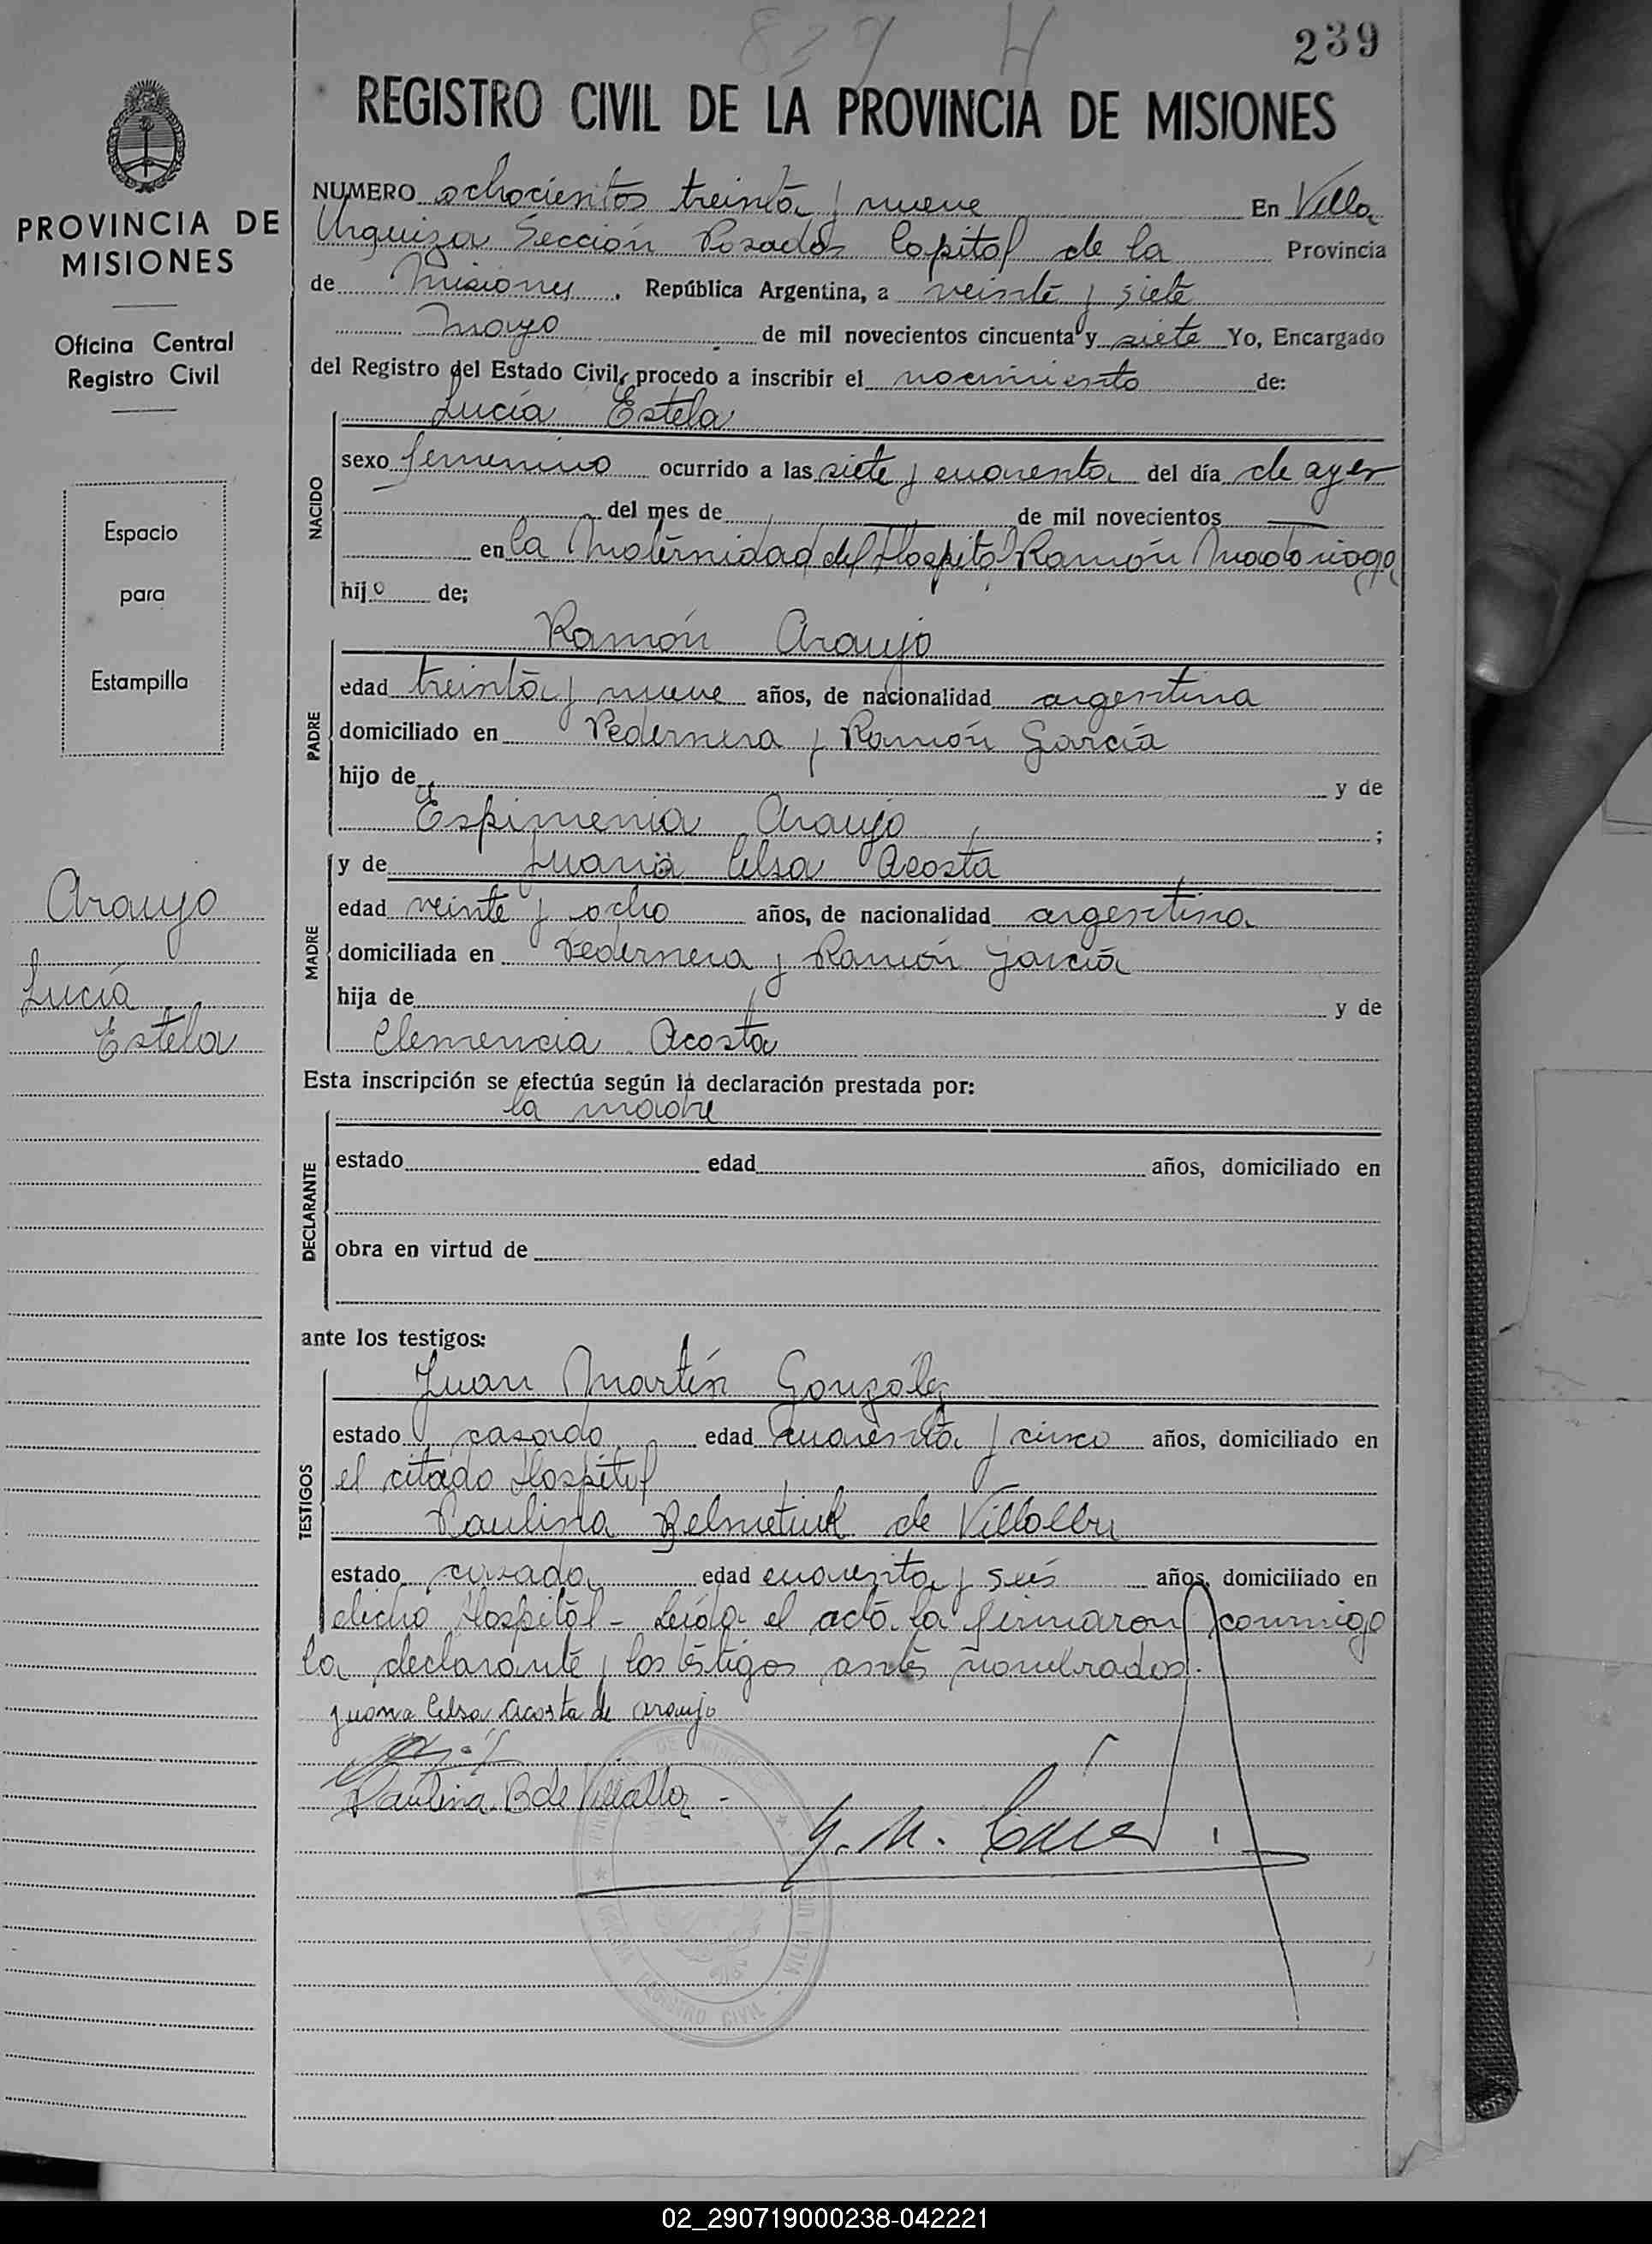 839 H
239
REGISTRO CIVIL DE LA PROVINCIA DE MISIONES
PROVINCIA DE
MISIONES
Oficina Central
Registro Civil
Espacio
para
Estampilla
Araujo
Lucía
Estela
NUMERO ochocientos treinta y nueve En Villa
Urquiza Sección Posadas Capital de la Provincia
de Misiones, República Argentina, a veinte y siete
Mayo de mil novecientos cincuenta y siete Yo, Encargado
del Registro del Estado Civil, procedo a inscribir el nacimiento de:
Lucía Estela
NACIDO
sexo femenino ocurrido a las siete y cuarenta del día de ayer
del mes de — de mil novecientos —
en la Maternidad del Hospital Ramón Madariaga
hijo de;
Ramón Araujo
PADRE
edad treinta y nueve años, de nacionalidad argentina
domiciliado en Pedernera y Ramón García
hijo de y de
Espimenia Araujo ;
y de Juana Celsa Acosta
MADRE
edad veinte y ocho años, de nacionalidad argentina
domiciliada en Pedernera y Ramón García
hija de y de
Clemencia Acosta
Esta inscripción se efectúa según la declaración prestada por:
la madre
DECLARANTE
estado edad años, domiciliado en
obra en virtud de
ante los testigos:
Juan Martín González
TESTIGOS
estado casado edad cuarenta y cinco años, domiciliado en
el citado Hospital
Paulina de Villalba
estado casada edad cuarenta y seis años, domiciliado en
dicho Hospital - Leída el acta la firmaron conmigo
la declarante y los testigos antes nombrados.
Juana Celsa Acosta de Araujo
Paulina B de Villalba -
OFICINA REGISTRO CIVIL
02_290719000238-042221